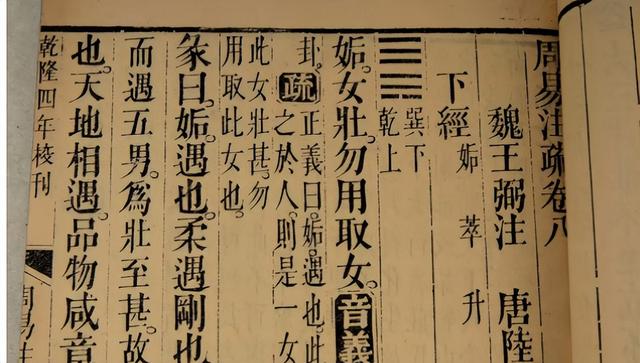 周易注疏卷八
魏王弼注 唐陸
下經 姤 萃 升
巽下
乾上
姤。女壯勿用取女。音義
卦。疏正義曰。姤。遇也。此
之於人。則是一女
此女壯甚。勿
用取此女也。
彖曰。姤。遇也。柔遇剛也
而遇五男。為壯至甚。故
也。天地相遇。品物咸章
乾隆四年校刊
周易